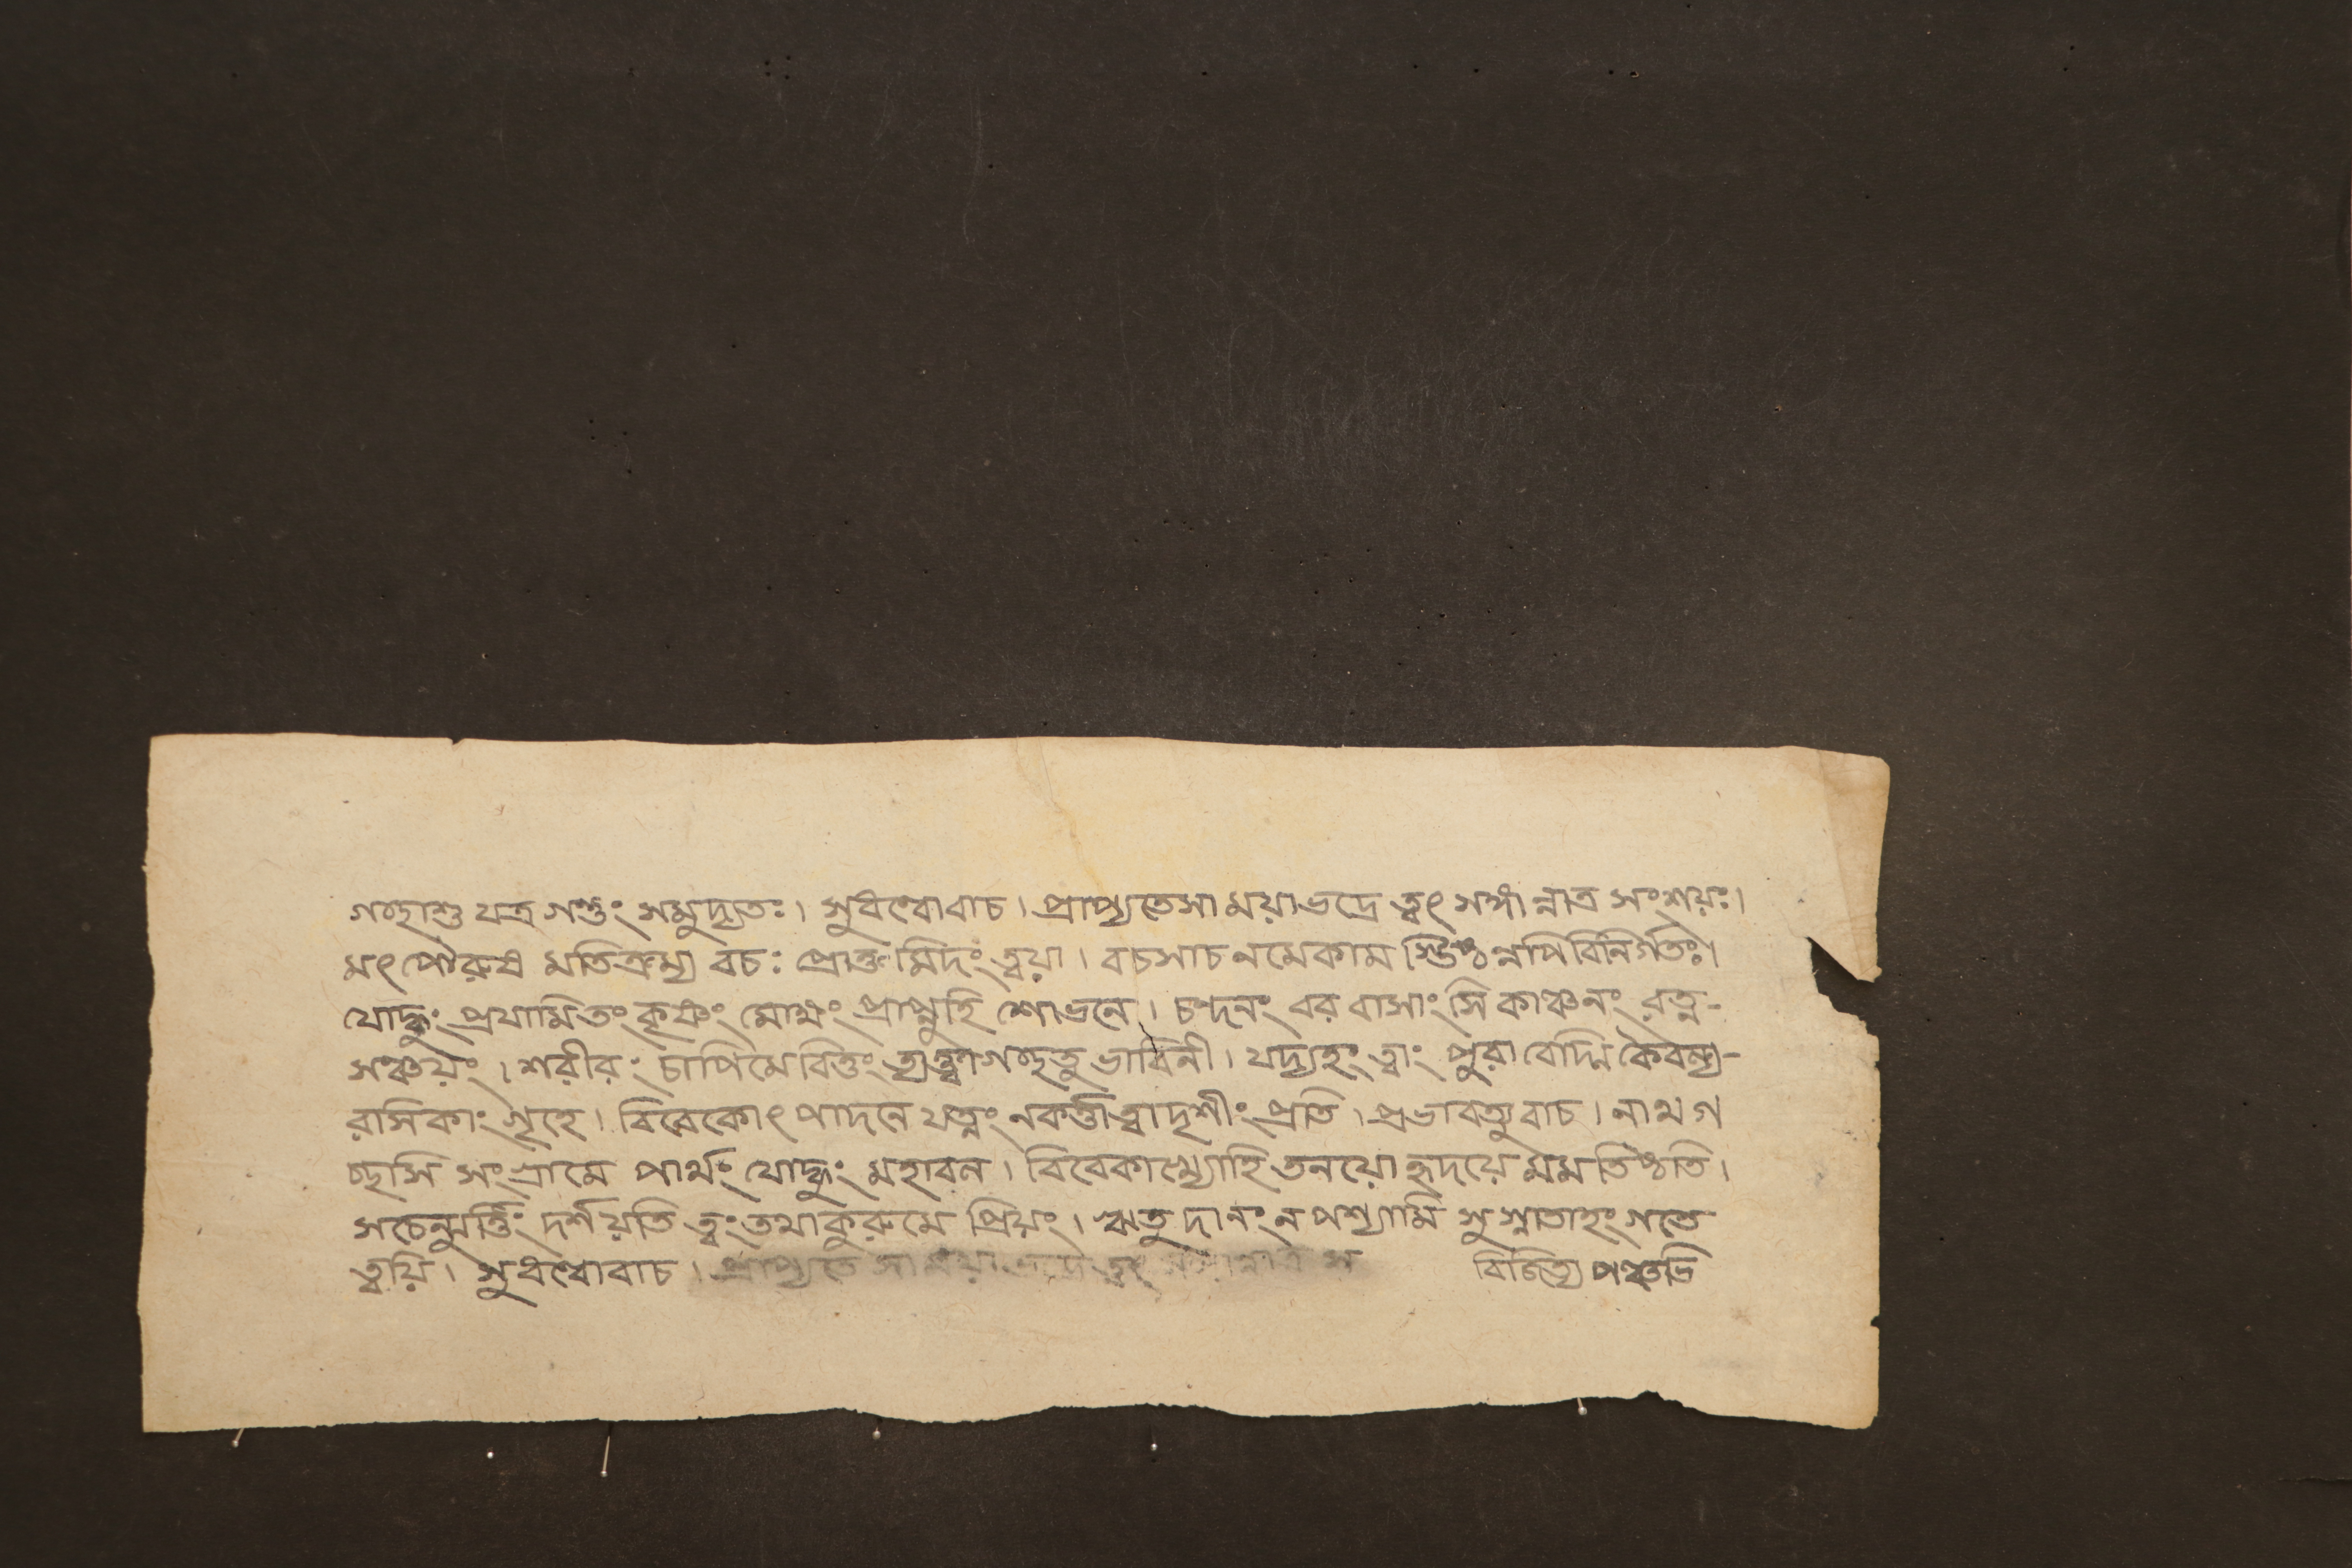 গচ্ছাশু যত্র গন্তুং সমুদ্যতঃ। সুধন্বোবাচ। প্রাপ্যতেসা ময়াভদ্রে ত্বৎ সঙ্গান্নাত্র সংশয়ঃ।
মৎ পৌরুষ মতিক্রম্য বচঃ প্রোক্ত মিদং ত্বয়া। বচসাচ নমেকাম স্তিষ্ঠন্নপি বিনির্গতঃ।
যোদ্ধুং প্রযামিতং কৃষ্ণং মোক্ষং প্রাপ্নুহি শোভনে। চন্দনং বর বাসাংসি কাঞ্চনং রত্ন-
সঞ্চয়ং। শরীরং চাপিমে বিত্তং ত্যক্ত্বাগচ্ছতু ভাবিনী। যদ্যহং ত্বাং পুরা বেদ্মি কৈবল্য-
রাসিকাং গৃহে। বিবেকোৎ পাদনে যত্নং নকর্ত্তাত্বাদৃশীং প্রতি। প্রভাবত্যুবাচ। নাথ গ
চ্ছসি সংগ্রামে পার্থং যোদ্ধুং মহাবল। বিবেকাখ্যোহি তনয়ো হৃদয়ে মম তিষ্ঠতি।
সচেন্মুর্ত্তিং দর্শয়তি ত্বং তথাকুরুমে প্রিয়ং। ঋতু দানং ন পশ্যামি সুস্নাতাহং গতে
ত্বয়ি। সুধন্বোবাচ। প্রাপ্যতে সা ময়া ভদ্রে ত্বৎ সঙ্গান্নাত্র স বিজিত্য পঞ্চভি